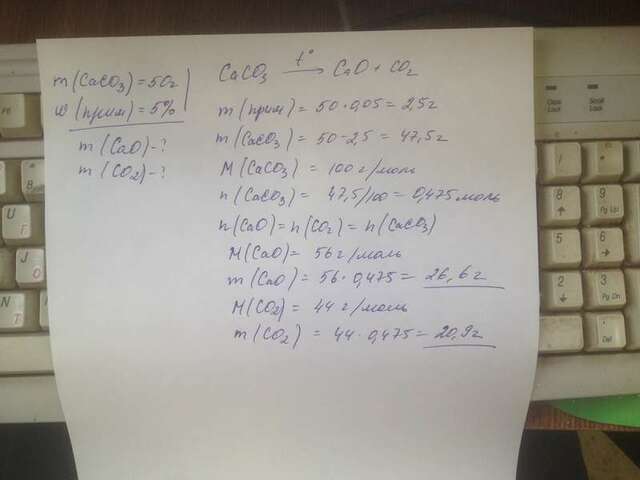 m(CaCO₃)=50г
w(прим)=5%
m(CaO)-?
m(CO₂)-?
CaCO₃ t° → CaO + CO₂
m(прим) = 50·0,05 = 2,5г
m(CaCO₃) = 50-2,5 = 47,5г
M(CaCO₃) = 100 г/моль
n(CaCO₃) = 47,5/100 = 0,475 моль
n(CaO) = n(CO₂) = n(CaCO₃)
M(CaO) = 56 г/моль
m(CaO) = 56·0,475 = 26,6г
M(CO₂) = 44 г/моль
m(CO₂) = 44·0,475 = 20,9г
U
Г
J
О
N
Т
Caps Lock
Scroll Lock
8
9
Pg Up
5
6
2
3
Pg Dn
Del